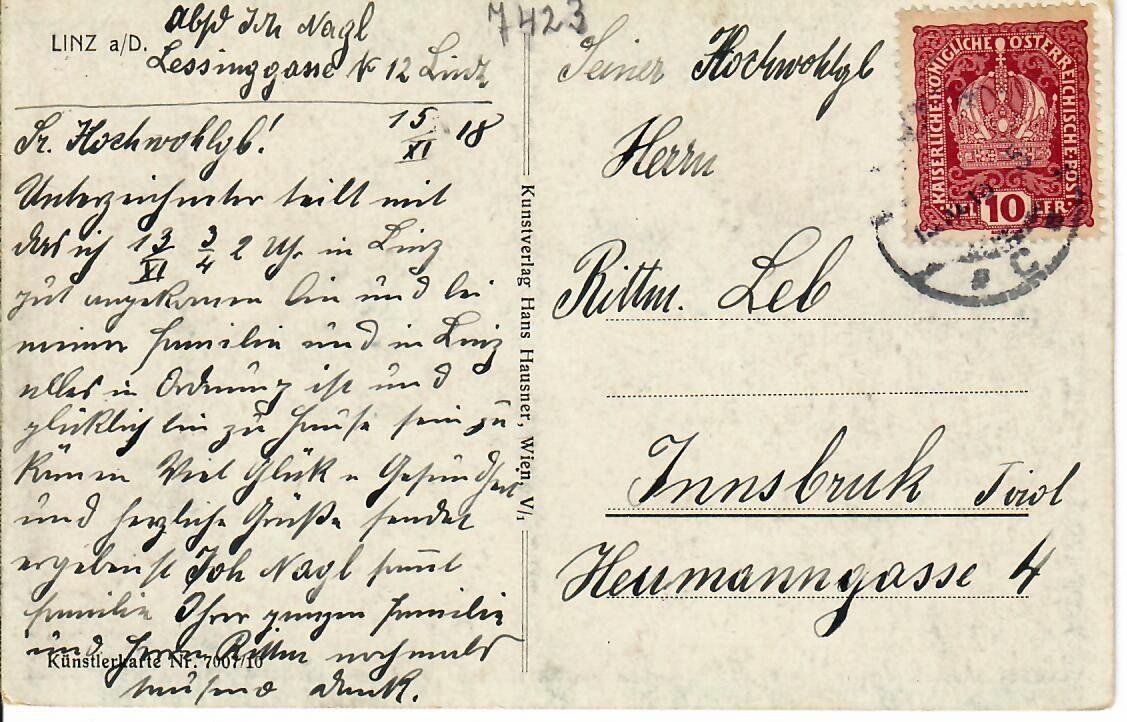 7423
LINZ a/D.
Abs Joh Nagl
Lessinggasse № 12 Linz
Sr. Hochwohlgb!
15/XI 18
Unterzeichneter teilt mit
das ich 13/XI 3/4 2 Uhr in Linz
gut angekomen bin und bei
meiner Familie und in Linz
alles in Ordnung ist und
glücklich bin zu Hause sein zu
könen Viel Glük u Gesundheit
und herzliche Grüße sendet
ergebenst Joh Nagl samt
Familie Ihrer ganzen Familie
und Herrn Rittm nochmals
tausend dank.
Künstlerkarte Nr. 7007/10
Kunstverlag Hans Hausner, Wien, V/1
Seiner Hochwohlgb
Herrn
Rittm. Leb
Innsbruk Tirol
Heumanngasse 4
KAISERLICHE KÖNIGLICHE ÖSTERREICHISCHE POST
10